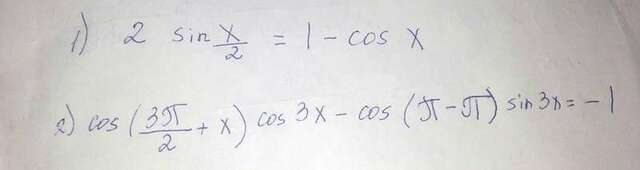 1) 2 sin x/2 = 1 - cos x
2) cos (3π/2 + x) cos 3x - cos (π - π) sin 3x = -1